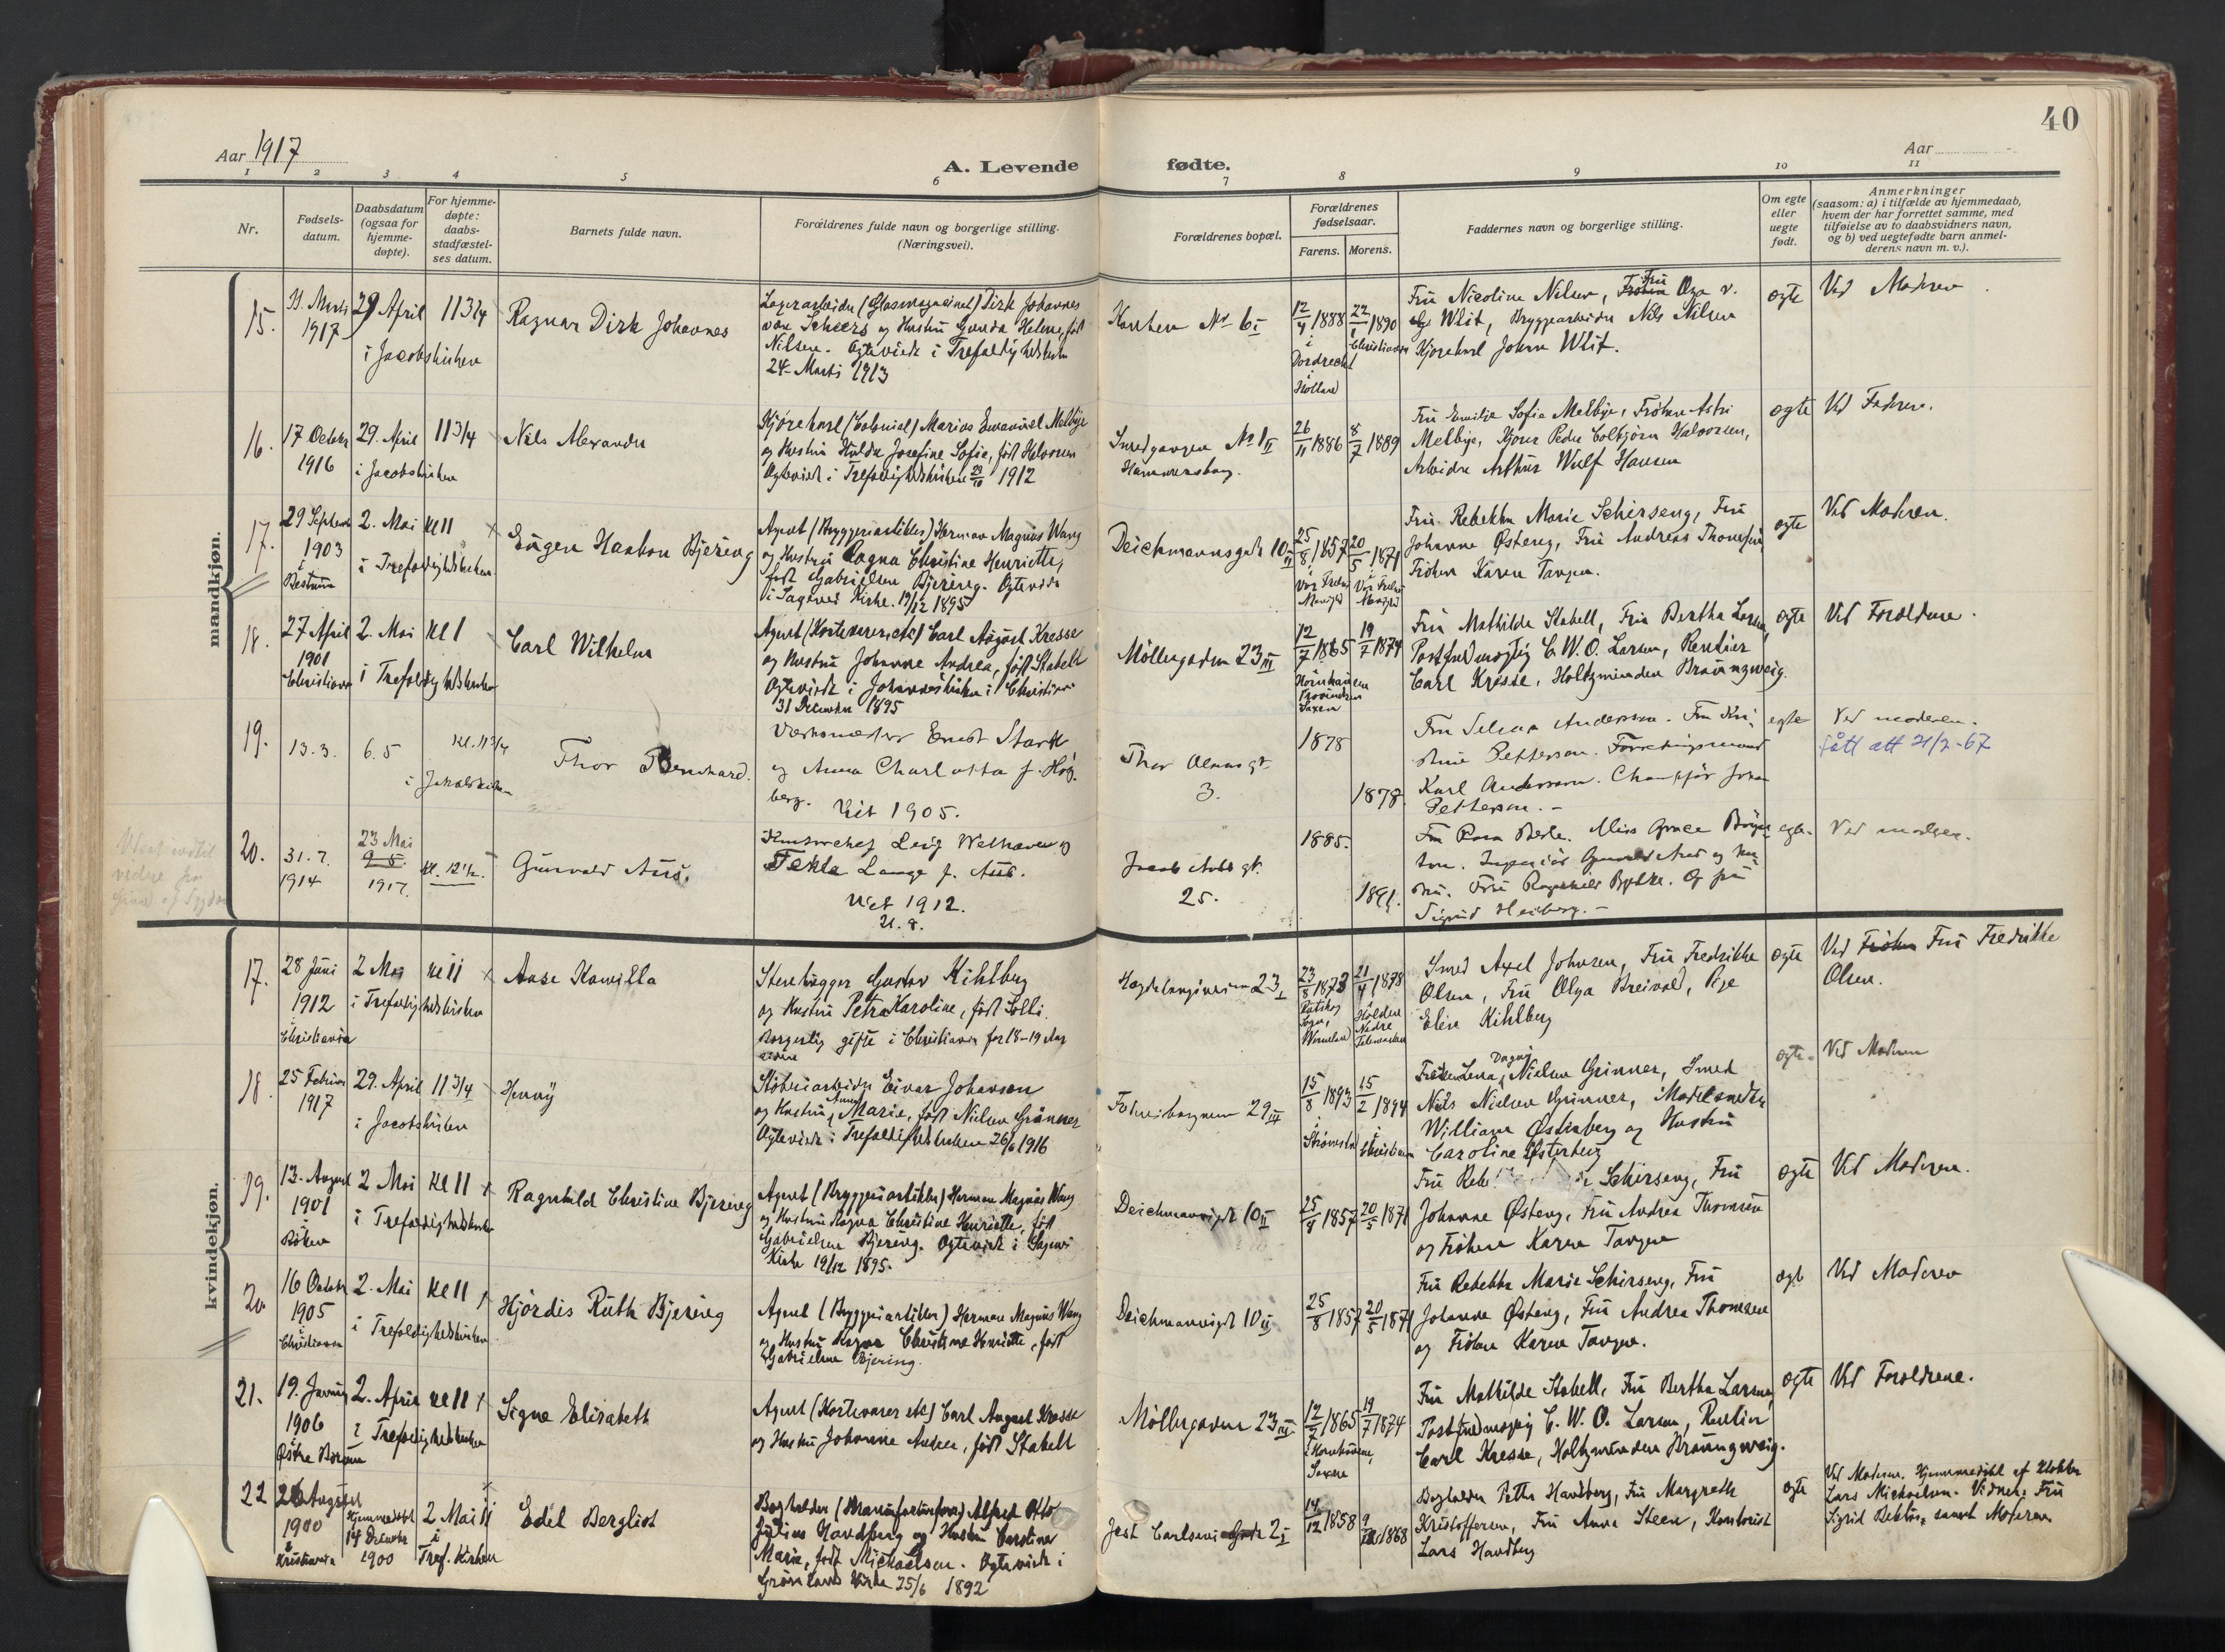 40
Aar 1917
A. Levende fødte.
Aar
1 2 3 4 5 6 7 8 9 10 11
Nr.
Fødsels-
datum.
Daabsdatum
(ogsaa for
hjemme-
døpte).
For hjemme-
døpte:
daabs-
stadfæstel-
ses datum.
Barnets fulde navn.
Forældrenes fulde navn og borgerlige stilling.
(Næringsvei).
Forældrenes bopæl.
Forældrenes
fødselsaar.
Farens. Morens.
Faddernes navn og borgerlige stilling.
Om egte
eller
uegte
født.
Anmerkninger
(saasom: a) i tilfælde av hjemmedaab,
hvem der har forrettet samme, med
tilføielse av to daabsvidners navn,
og b) ved uegtefødte barn anmel-
derens navn m. v.).
mandkjøn.
15.
Marts
1917
29 April
i Jacobskirken
11 3/4
Ragnar Dirk Johannes
Lagerarbeider (Glasmagasinet) Dirk Johannes
van Scheers og Hustru Gunda Helene, født
Nilsen. Ogteviede i Trefoldighedskirken
24 Marts 1913
No 6 I
12/4 1888
i
Dordrecht
i
Holland
22/1 1890
Christiania
Fru Nicoline Nilsen, Fru Olga v.
Wlit, Bryggearbeider Nils Nilsen
Kjørekarl Johan Wlit.
ogte
Ved Moderen.
16.
17 Octobr
1916
29. April
i Jacobskirken
11 3/4
Nils Alexander
Kjørekarl (Colonial) Marius Emanuel Melbye
og Hustru Hulda Josefine Sofie, født Halvorsen
Ogteviede i Trefoldighedskirken 20/10 1912
Smedgangen No 1 II
Hammersborg.
26/11 1886
8/7 1889
Fru Emilie Sofie Melbye, Frøken Astri
Melbye, Kjører Peder Colbjørn Halvorsen,
Arbeider Arthur Wulf Hansen
ogte
Ved Faderen.
17.
29 Septembr
1903
i
Bestum
2. Mai
i Trefoldighedskirken
Kl 11
Eugen Haakon Bjering
Agent (Bryggeriartikler) Herman Magnus Wang
og Hustru Ragna Christine Henriette,
født Gabrielsen Bjering. Ogteviede
i Sagenes Kirke. 19/12 1895
Deichmannsgade 10 II
25/8 1857
Vor Frelsers
Menighed
20/5 1871
Vor Frelsers
Menighed
Fru Rebekka Marie Schirseng, Fru
Johanne Østeng, Fru Andrea Thomsen
Frøken Karen Tangen.
ogte
Ved Moderen.
18.
27 April
1901
Christiania
2. Mai
i Trefoldighedskirken
Kl 1
Carl Wilhelm
Agent (Kortevarer etc) Carl August Kresse
og Hustru Johanne Andrea, født Stabell
Ogteviede i Johanneskirken i Christiania
31 December 1895
Møllergaden 23 III
12/7 1865
Hornhausen
Provindsen
Saxen
19/7 1874
Fru Mathilde Stabell, Fru Bertha Larsen,
Postfuldmægtig C. W. O. Larsen, Rentier
Carl Kresse, Holtzminden Braunzweig.
ogte
Ved Forældrene.
19.
13. 3.
6. 5
i Jakobskirken
Kl. 11 3/4
Thor Bernhard.
Verksmester Ernst Stark
og Anna Charlotta f. Høg-
berg.
Viet 1905.
Thor Olsens gt.
3.
1878
1878.
Fru Selma Andersson. Fru Kri-
stine Petterson. Forretningsmand
Karl Andersson. Chauffør Johan
Petterson. –
egte
Ved moderen.
fått att 21/2-67
20.
31. 7.
1914
23 Mai
9 5.
1917.
kl. 12 1/2.
Gunvald Aus.
Leif Welhaven og
Tekla Lange f. Aus.
Viet 1912.
21. 8.
Jacob Aalls gt.
25.
1885.
1891.
Fru Rosa Berle. Miss Grace
Ingeniør Gunvald Aus og
Fru Ragnhild Bødtker. Og frk
Sigrid Heiberg. –
egte.
Ved moderen.
kvindekjøn.
17.
28 Juni
1912
i
Christiania
2 Mai
i Trefoldighedskirken
Kl 11
Aase Kamilla
Stenhugger Gustav Kihlberg
og Hustru Petra Karoline, født Solli.
Borgerlig gifte i Christiania for 18–19 Aar
siden
23 I
23/8 1873
Wermeland
21/4 1878
Holden
Nedre
Telemarken
Smed Axel Johnsen, Fru Fredrikke
Olsen, Fru Olga Breivold, Pige
Elin Kihlberg
ogte
Ved Frøken Fru Fredrikke
Olsen.
18.
25 Februar
1917
29. April
i Jacobskirken
11 3/4
Henry
Støberiarbeider Einar Johansen
og Hustru Anna Marie, født Nielsen Grünner
Ogteviede i Trefoldighedskirken 26/ 1916
Fossveibogaden 29 IV
15/8 1893
i
Strömstad
15/2 1894
i
Christiania
Frøken Lena Dagny Nielsen Grünner, Smed
Nils Nielsen Grünner, Modelsnedker
William Østerberg og Hustru
Caroline Østerberg
ogte.
Ved Moderen
19.
13. August
1901
i
Røken
2 Mai
i Trefoldighedskirken
Kl 11
Ragnhild Christine Bjering
Agent (Bryggeriartikler) Herman Magnus Wang
og Hustru Ragna Christine Henriette, født
Gabrielsen Bjering. Ogteviede i Sagenes
Kirke 19/12 1895.
Deichmannsgt 10 II
25/8 1857
20/5 1871
Fru Schirseng, Fru
Johanne Østeng, Fru Andrea Thomsen
og Frøken Karen Tangen
ogte
Ved Moderen.
20
16 October
1905
i
Christiania
2. Mai
i Trefoldighedskirken
Kl 11
Hjørdis Ruth Bjering
Agent (Bryggeriartikler) Herman Magnus Wang
og Hustru Ragna Christine Henriette, født
Gabrielsen Bjering.
Deichmannsgt 10 II
25/8 1857
20/5 1871
Fru Rebekka Marie Schirseng, Fru
Johanne Østeng, Fru Andrea Thomsen
og Frøken Karen Tangen.
ogte
Ved Moderen
21.
19. Januar
1906
Østre Bærum
2. April
i Trefoldighedskirken
Kl 11
Signe Elisabeth
Agent (Kortevarer etc) Carl August Kresse
og Hustru Johanne Andrea, født Stabell
Møllergaden 23 III
12/7 1865
i Hornhausen,
Saxen
19/7 1874
Fru Mathilde Stabell, Fru Bertha Larsen,
Postfuldmægtig C. W. O. Larsen, Rentier
Carl Kresse, Holtzminden Braungweig.
ogte
Ved Forældrene.
22
August
1900
i
Kristiania
Hjemmedøbt
14 Decembr
1900
2 Mai 11
i
Tref. Kirken
Edel Bergliot
Bogholder (Manufakturforr.) Alfred Otto
Julius Havdberg og Hustru Caroline
Marie, født Michaelsen. Ogteviede i
Grønlands Kirke 25/6 1892
Jest Carlsensgade 2 I
14/12 1858
1868
Bogholder Petter Havdberg, Fru Margreth
Kristoffersen, Fru Anna Steen, Kontorist
Lars Havdberg
ogte
Ved Moderen. Hjemmedøbt af Klokker
Lars Michaelsen. Vidner: Fru
Sigrid samt Moderen